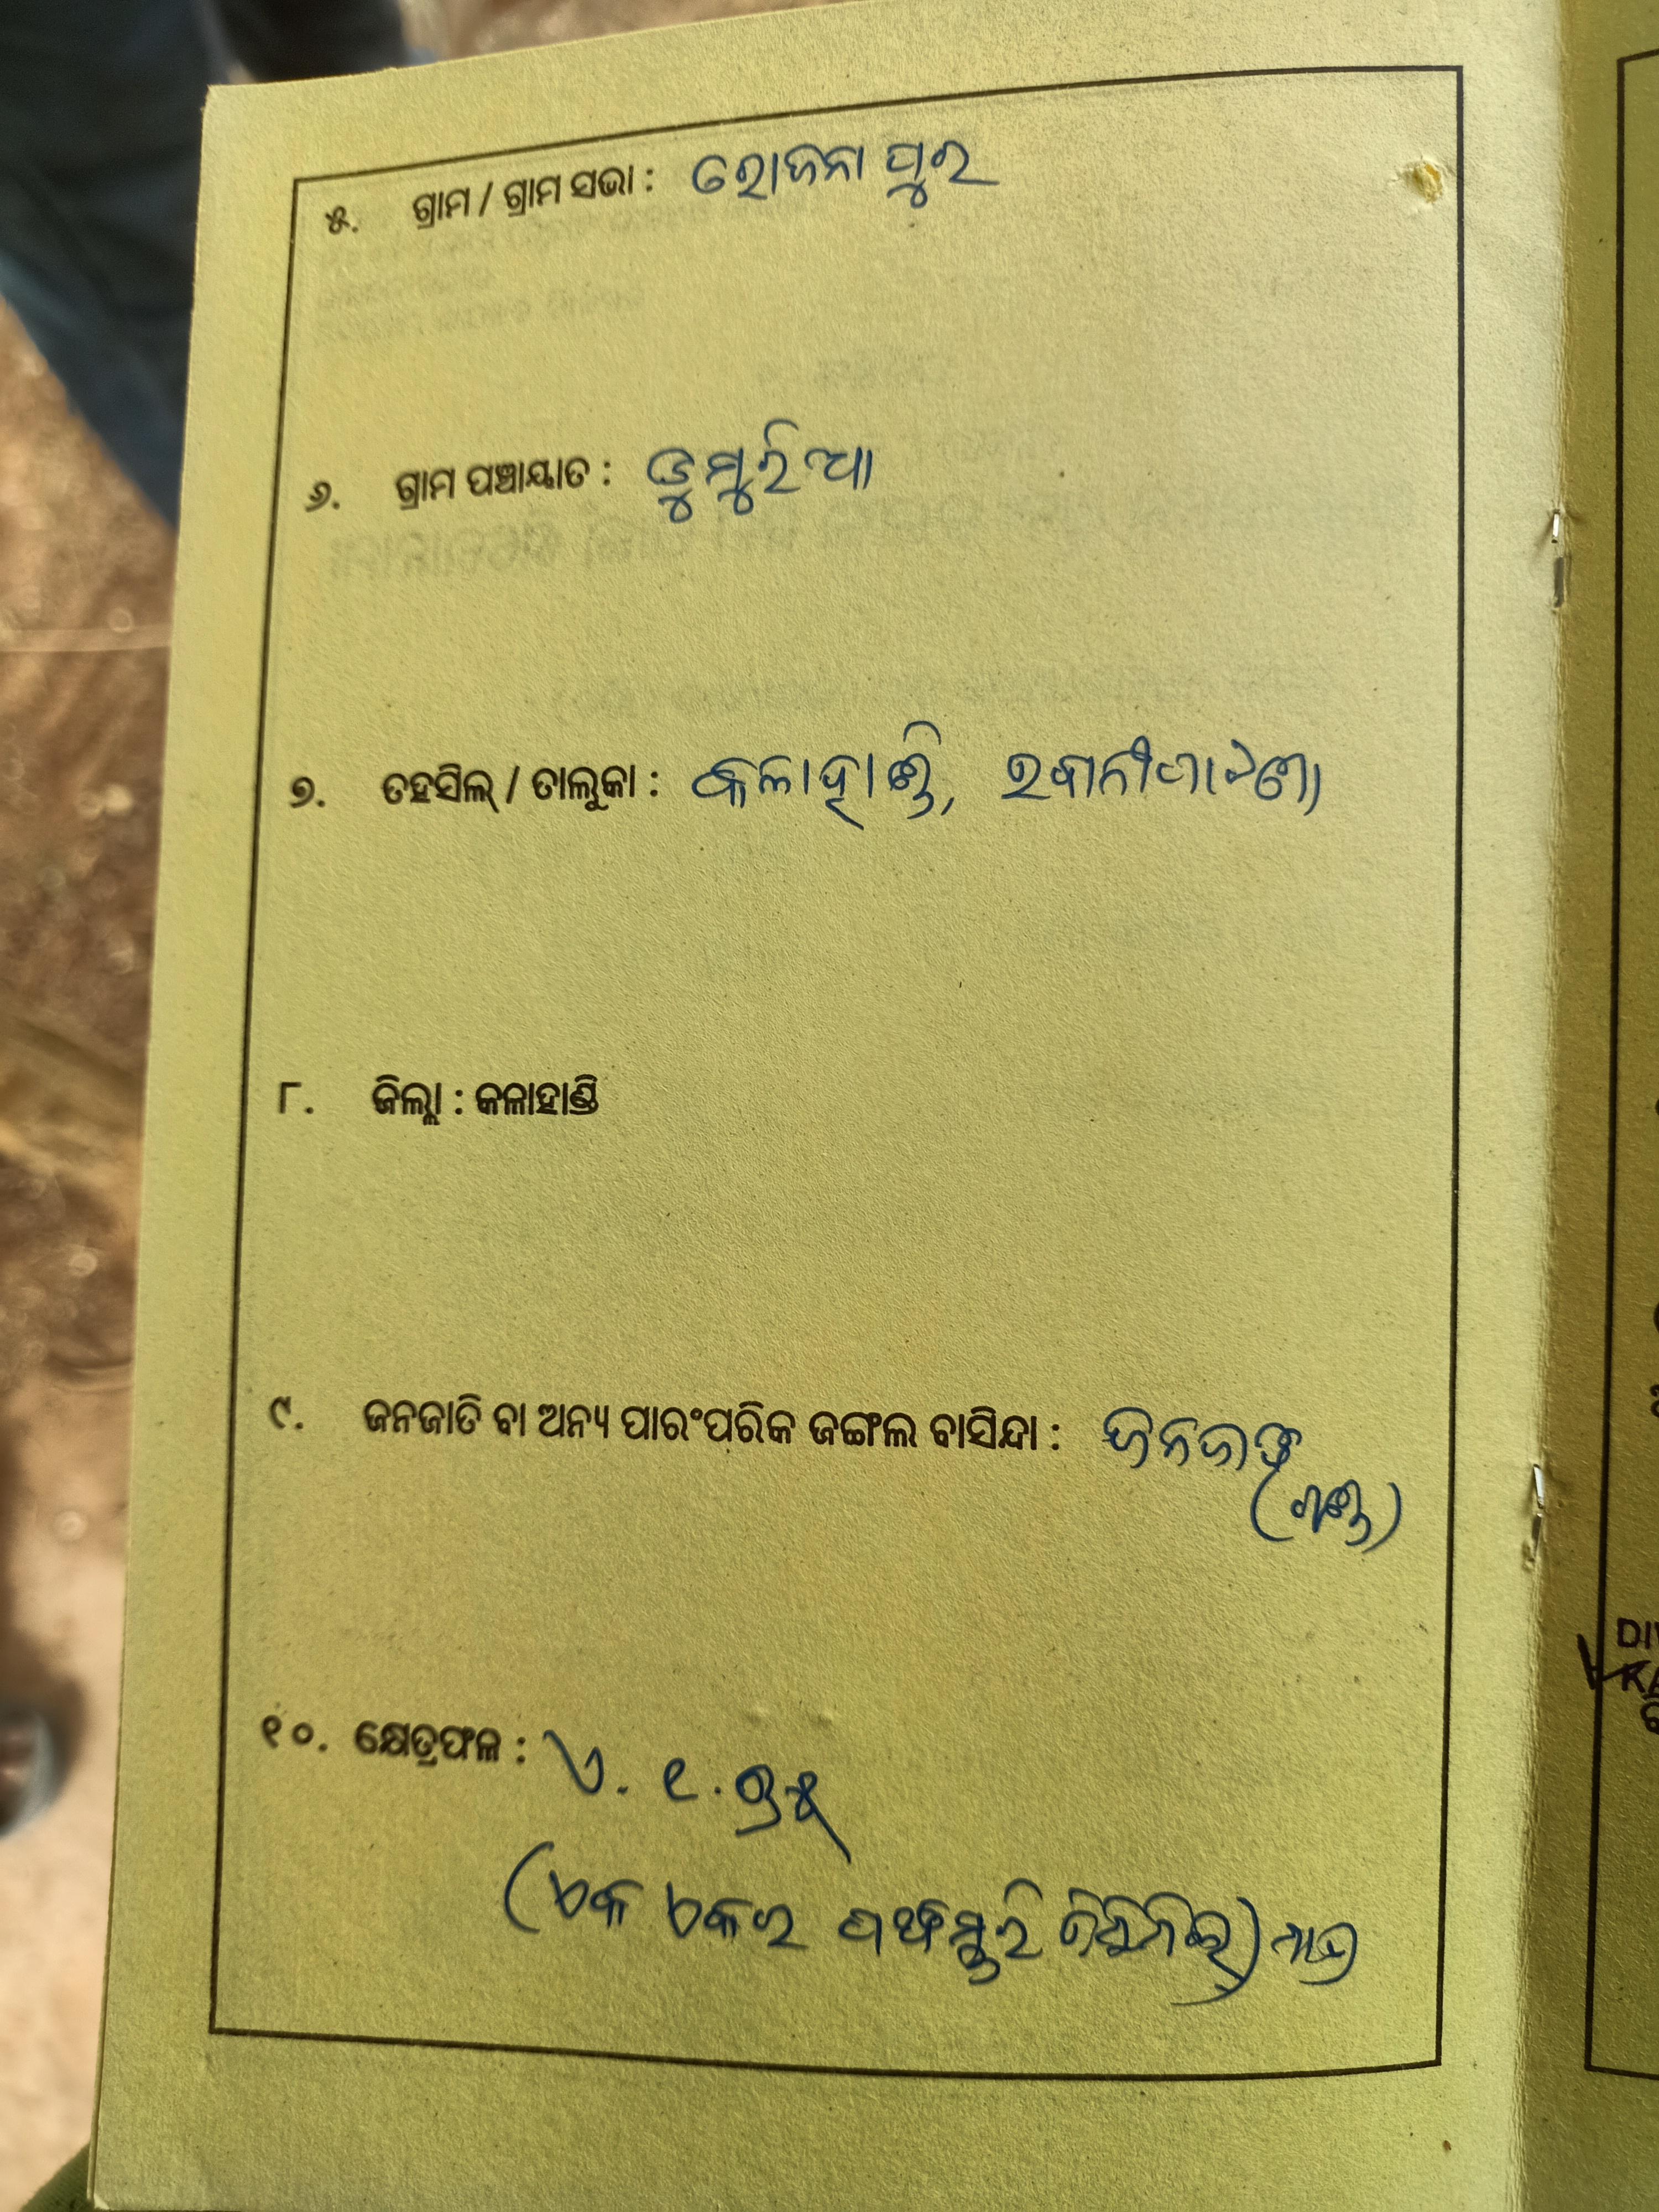 ୫. ଗ୍ରାମ / ଗ୍ରାମ ସଭା : ରୋଜନା ପୁର
୬. ଗ୍ରାମ ପଞ୍ଚାୟାତ : ଡୁମୁରିଆ
୭. ତହସିଲ୍ / ତାଲୁକା : କଳାହାଣ୍ଡି,
୮. ଜିଲ୍ଲା : କଳାହାଣ୍ଡି
୯. ଜନଜାତି ବା ଅନ୍ୟ ପାରଂପରିକ ଜଙ୍ଗଲ ବାସିନ୍ଦା : ଜନଜାତି
୧୦. କ୍ଷେତ୍ରଫଳ : ଏ. ୧.
(ଏକ ଏକର ପଞ୍ଚସ୍ତରି ଡିସିମିଲ୍) ମାତ୍ର